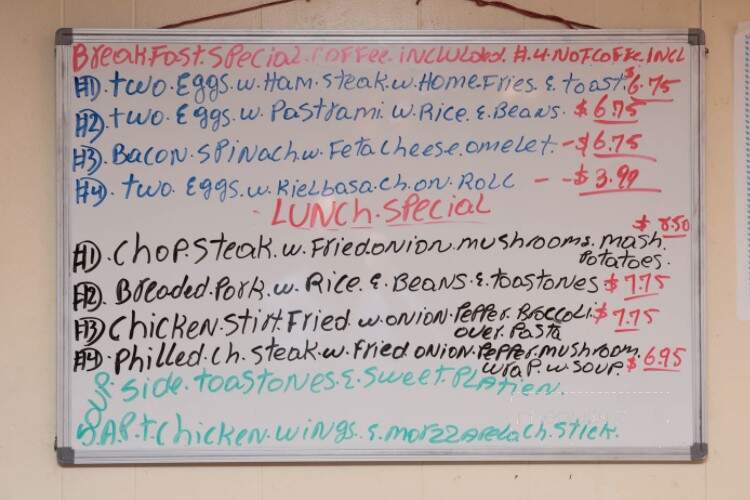 BreakFast.Special.Coffee.included.#.4.Not Coffe.Incl
#1).two.Eggs.w.Ham.steak.w.Home.Fries.&.toast.$6.75
#2).two.Eggs.w.Pastrami.w.Rice.&.Beans.$6.75
#3).Bacon.Spinach.w.Feta Cheese.omelet.-$6.75
#4).two.Eggs.w.Kielbasa.ch.on.Roll - -$3.99
-LUNCH.Special
$8.50
#1).Chop.Steak.w.Fried onion.mushrooms.mash.
Potatoes.
#2).Breaded.Pork.w.Rice.&.Beans.&.toastones $7.75
#3) Chicken.Stirt.Fried.w.onion.Pepper.Broccoli.$7.75
over.Pasta
#4).Philled.ch.Steak.w.Fried.onion.Pepper.mushroom.
wrap.w.soup.$6.95
side.toastones.&.Sweet.Platien.
SOUP
APT.Chicken.wings.&.morzzarela.ch.stick.